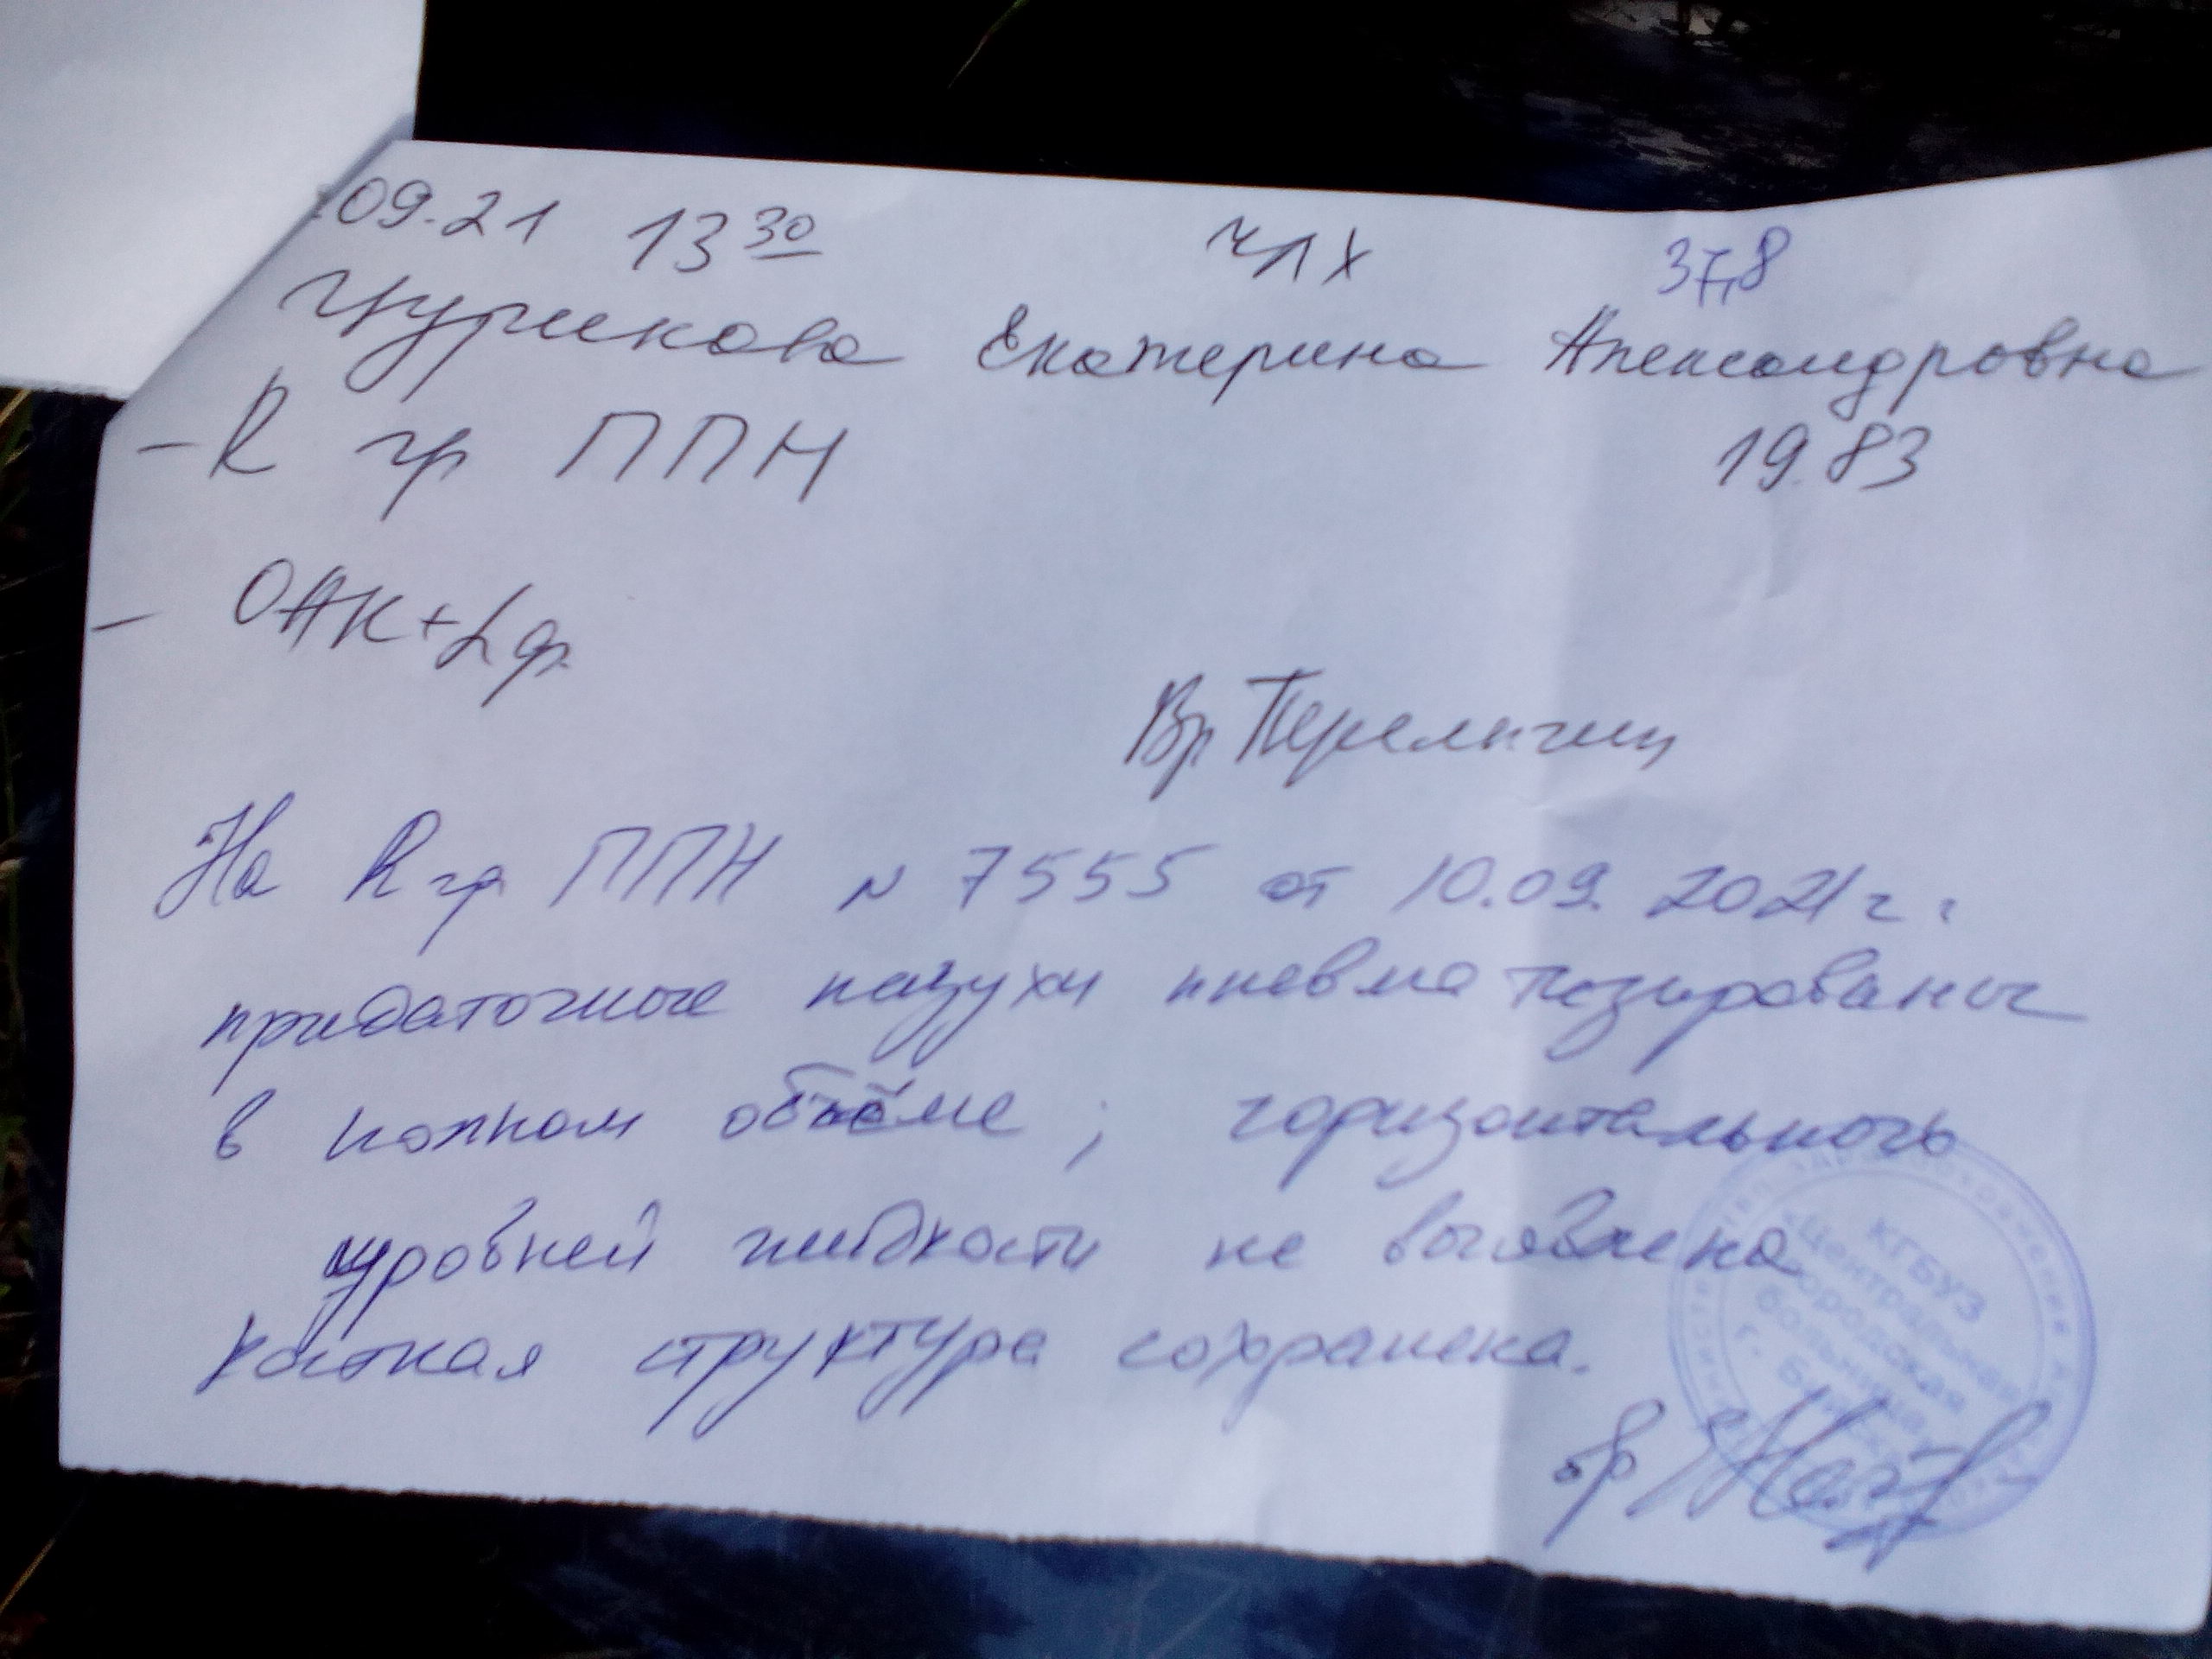 09.21 13 30 ЧЛХ 37,8
Екатерина Александровна
- R гр ППН 1983
- ОАК + Lф
Вр
На R гр ППН N 7555 от 10.09.2021 г.
придаточные пазухи пневматизированы
в полном объёме; горизонтального
уровней жидкости не выявлена
костная структура сохранена.
вр
КГБУЗ
"Центральная
городская
больница
г. Бийск